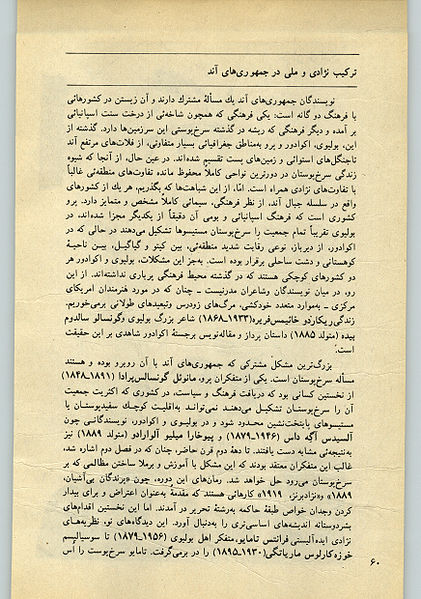 ترکیب نژادی و ملی در جمهوری‌های آند
نویسندگان جمهوری‌های آند یك مسألهٔ مشترك دارند و آن زیستن در کشورهائی
با فرهنگ دو گانه است: یکی فرهنگی که همچون شاخه‌ئی از درخت سنت اسپانیائی
بر آمده و دیگر فرهنگی که ریشه در گذشته سرخ‌پوستی این سرزمین‌ها دارد. گذشته از
این، بولیوی، اکوادور و پرو به‌مناطق جغرافیائی بسیار متفاوتی، از فلات‌های مرتفع آند
تاجنگل‌های استوائی و زمین‌های پست تقسیم شده‌اند. در عین حال، از آنجا که شیوه
زندگی سرخ‌پوستان در دورترین نواحی کاملا محفوظ مانده تفاوت‌های منطقه‌ئی غالباً
با تفاوت‌های نژادی همراه است. امّا، از این شباهت‌ها که بگذریم، هر یك از کشورهای
واقع در سلسله جبال آند، از نظر فرهنگی، سیمائی کاملا مشخص و متمایز دارد. پرو
کشوری است که فرهنگ اسپانیائی و بومی آن دقیقاً از یکدیگر مجزا شده‌اند، در
بولیوی تقریباً تمام جمعیت را سرخ‌پوستان مستیسوها تشکیل می‌دهند در حالی که در
اکوادور، از دیرباز، نوعی رقابت شدید منطقه‌ئی، بین کیتو و گیاگیل، بین ناحیهٔ
کوهستانی و دشت ساحلی برقرار بوده است. به‌جز این مشکلات، بولیوی و اکوادور هر
دو کشورهای کوچکی هستند که در گذشته محیط فرهنگی پرباری نداشته‌اند. از این
رو، در میان نویسندگان وشاعران مدرنیست ـ چنان که در مورد هنرمندان امریکای
مرکزی ـ به‌موارد متعدد خودکشی، مرگ‌های زودرس وتبعیدهای طولانی برمی‌خوریم.
زندگی ریکاردو خائیمس‌فریره (۱۹۳۳ـ۱۸۶۸) شاعر بزرگ بولیوی وگونسالو سالدوم
بیده (متولد ۱۸۸۵) داستان پرداز و مقاله‌نویس برجستهٔ اکوادور شاهدی بر این حقیقت
است:
بزرگ‌ترین مشکل مشترکی که جمهوری‌های آند با آن روبرو بوده و هستند
مسأله سرخ‌پوستان است. یکی از متفکران پرو، مانوئل گونسالس‌پرادا (۱۸۹۱ـ۱۸۴۸)
از نخستین کسانی بود که دریافت فرهنگ و سیاست، در کشوری که اکثریت جمعیت
آن را سرخ‌پوستان تشکیل می‌دهند نمی‌تواند به‌اقلیت کوچك سفیدپوستان یا
مستیسوهای پایتخت‌نشین محدود شود و در بولیوی و اکوادور، نویسندگانی چون
آلسیدس آگه داس (۱۹۴۶ـ۱۸۷۹) و پیوخارا میلیو آلوارادو (متولد ۱۸۸۹) نیز
به‌نتیجه‌ئی مشابه دست یافتند. تا دههٔ دوم قرن حاضر، چنان که در فصل دوم اشاره شد،
غالب این متفکران معتقد بودند که این مشکل با آموزش و برملا ساختن مظالمی که بر
سرخ‌پوستان می‌رود حل خواهد شد. رمان‌های این دوره، چون «پرندگان بی‌آشیان،
۱۸۸۹» و«نژادبرنز، ۱۹۱۹» کارهائی هستند که مقدمهٔ به‌عنوان اعتراض و برای بیدار
کردن وجدان خواص طبقهٔ حاکمه به‌رشتهٔ تحریر در آمدند. اما این نخستین اقدام‌های
بشردوستانه اندیشه‌های اساسی‌تری را به‌دنبال آورد. این دیدگاه‌های نو، نظریه‌های
نژادی ایده‌آلیستی فرانتس تامایو، متفکر اهل بولیوی (۱۹۵۶ـ۱۸۷۹) تا سوسیالیسم
خوزه‌کارلوس ماریاتگی (۱۹۳۰ـ۱۸۹۵) را در برمی‌گرفت. تامایو سرخ‌پوست را اس
۶۰